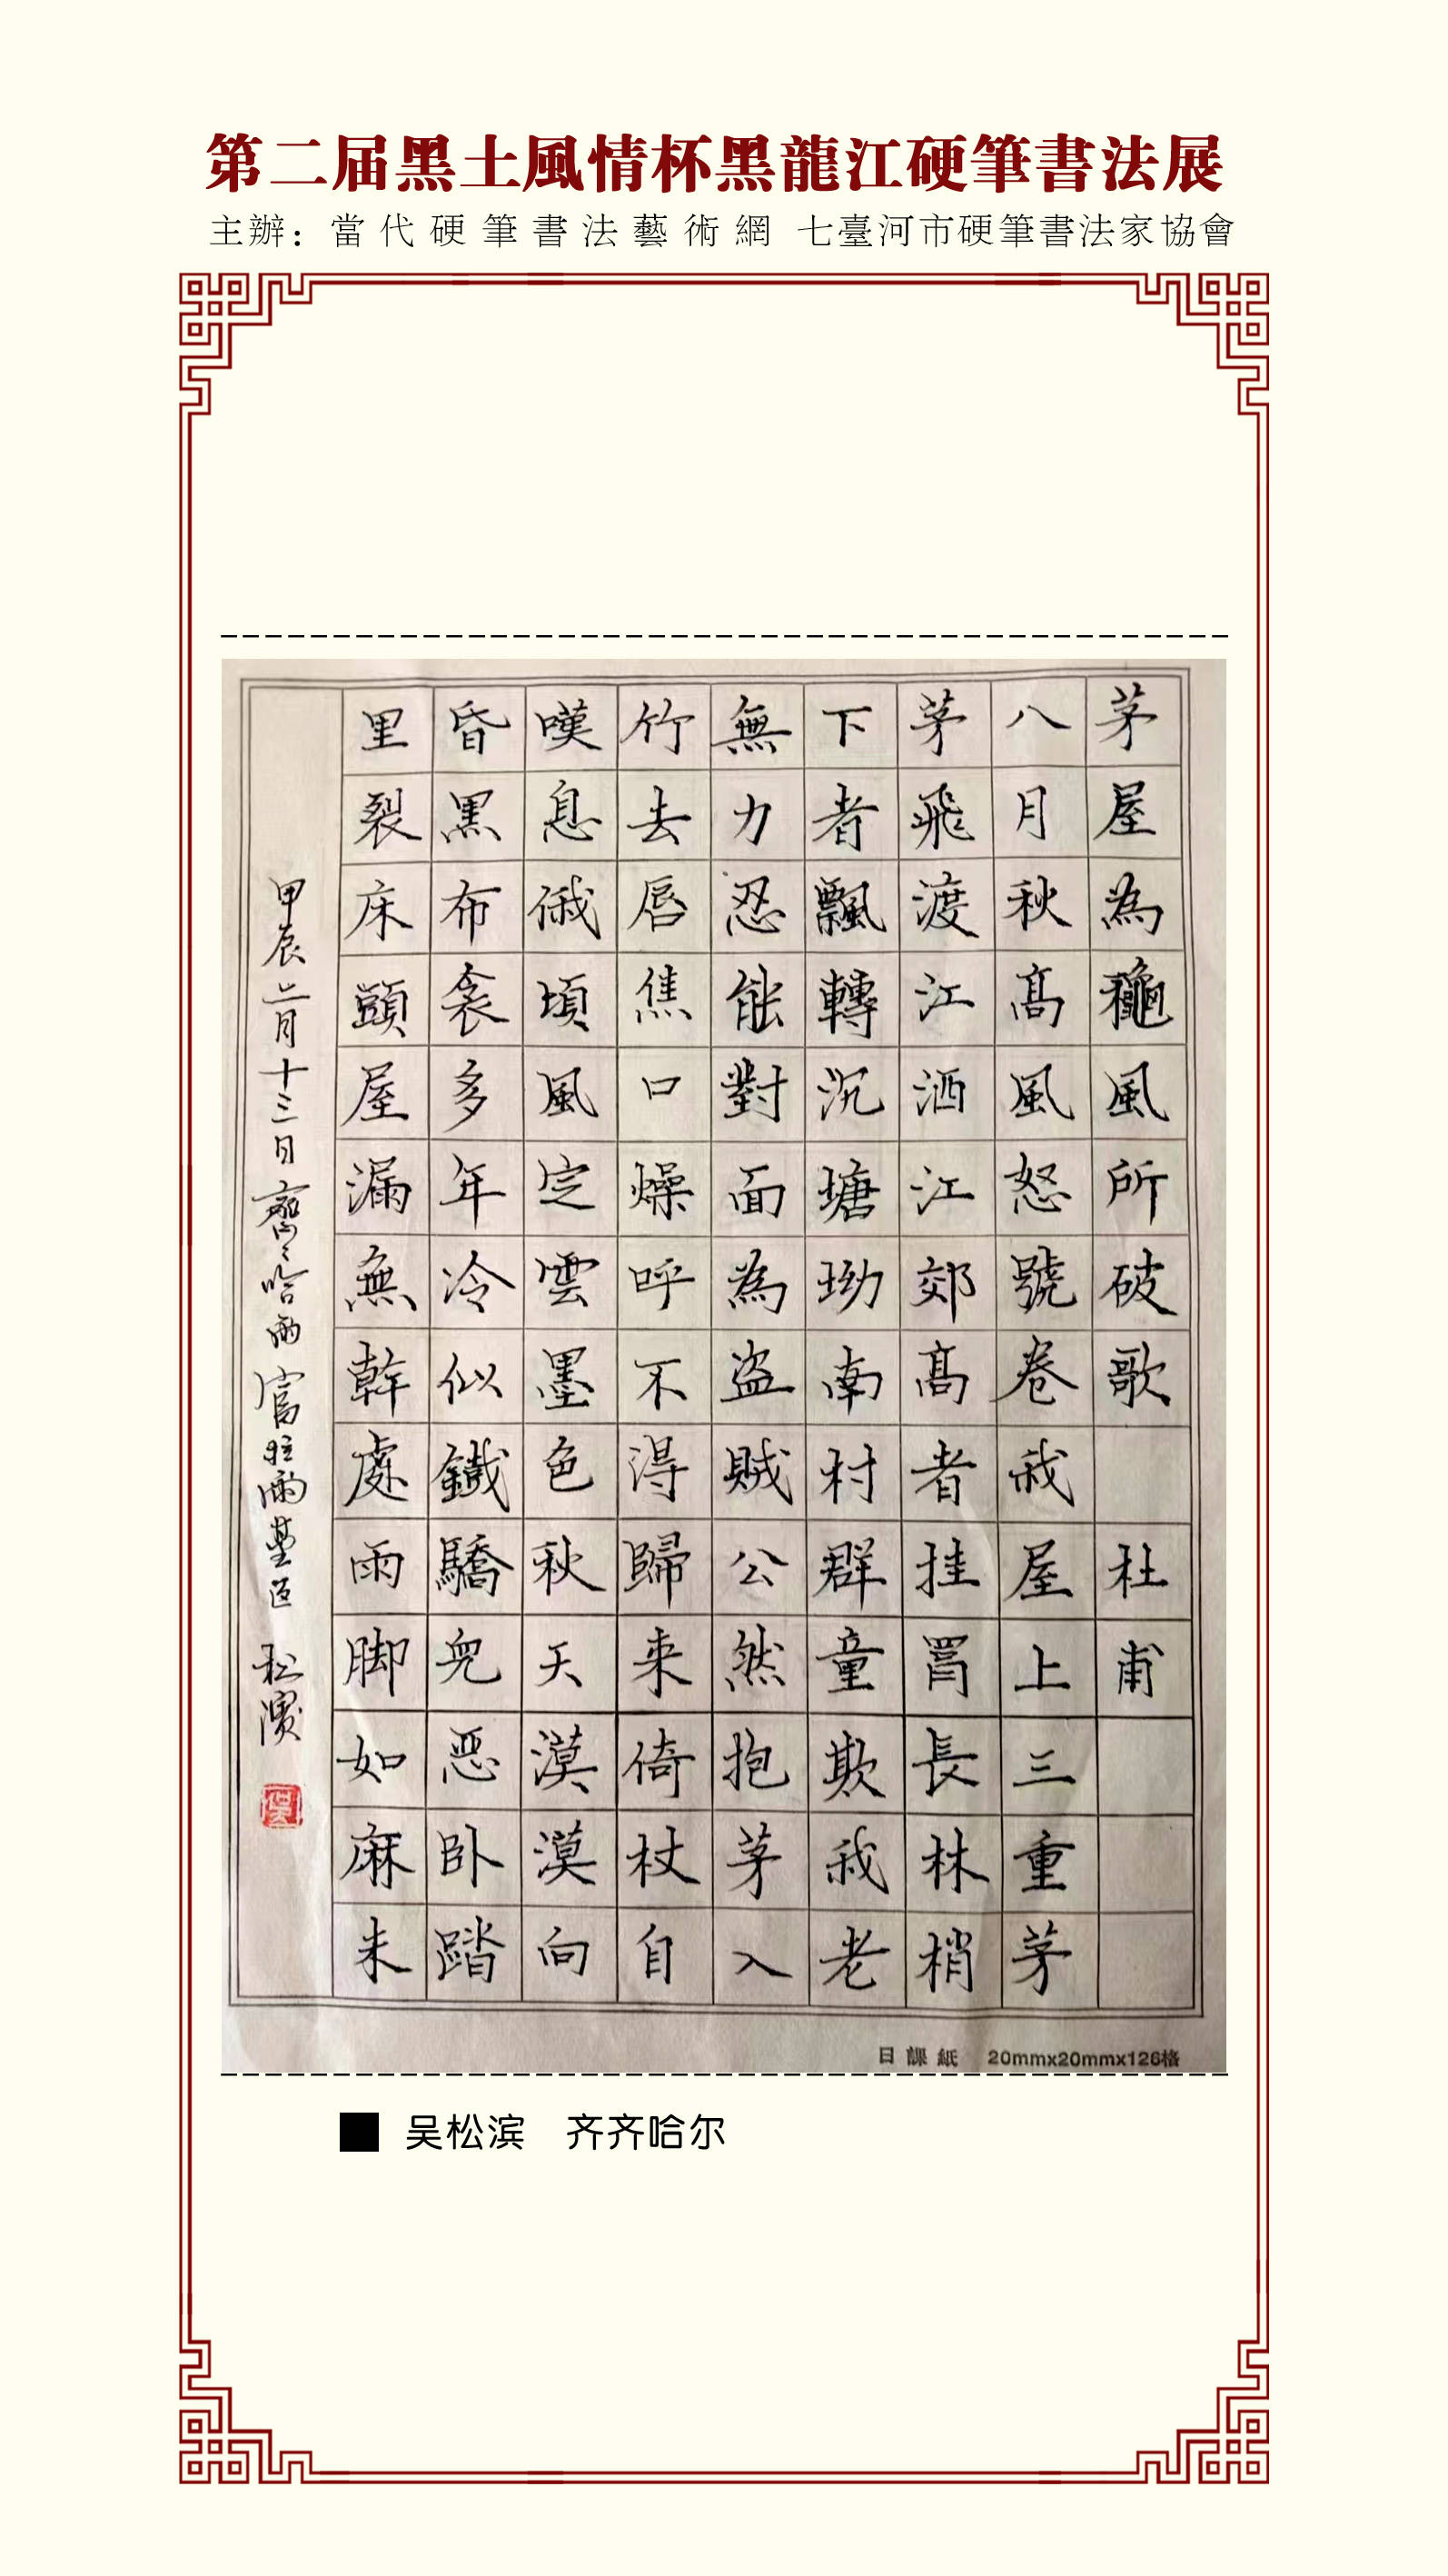 第二届黑土風情杯黑龍江硬筆書法展
主辦：當代硬筆書法藝術網 七臺河市硬筆書法家協會
茅屋為龝風所破歌 杜甫
八月秋髙風怒號卷我屋上三重茅
茅飛渡江洒江郊髙者挂罥長林梢
下者飄轉沉塘坳南村群童欺我老
無力忍能對面為盗賊公然抱茅入
竹去唇焦口燥呼不得歸来倚杖自
嘆息俄頃風定雲墨色秋天漠漠向
昏黑布衾多年冷似鐵驕兒恶卧踏
里裂床頭屋漏無幹處雨脚如麻未
甲辰月十三日齊々哈爾富拉爾基区 松濱
日課紙 20mmx20mmx126格
吴松滨 齐齐哈尔